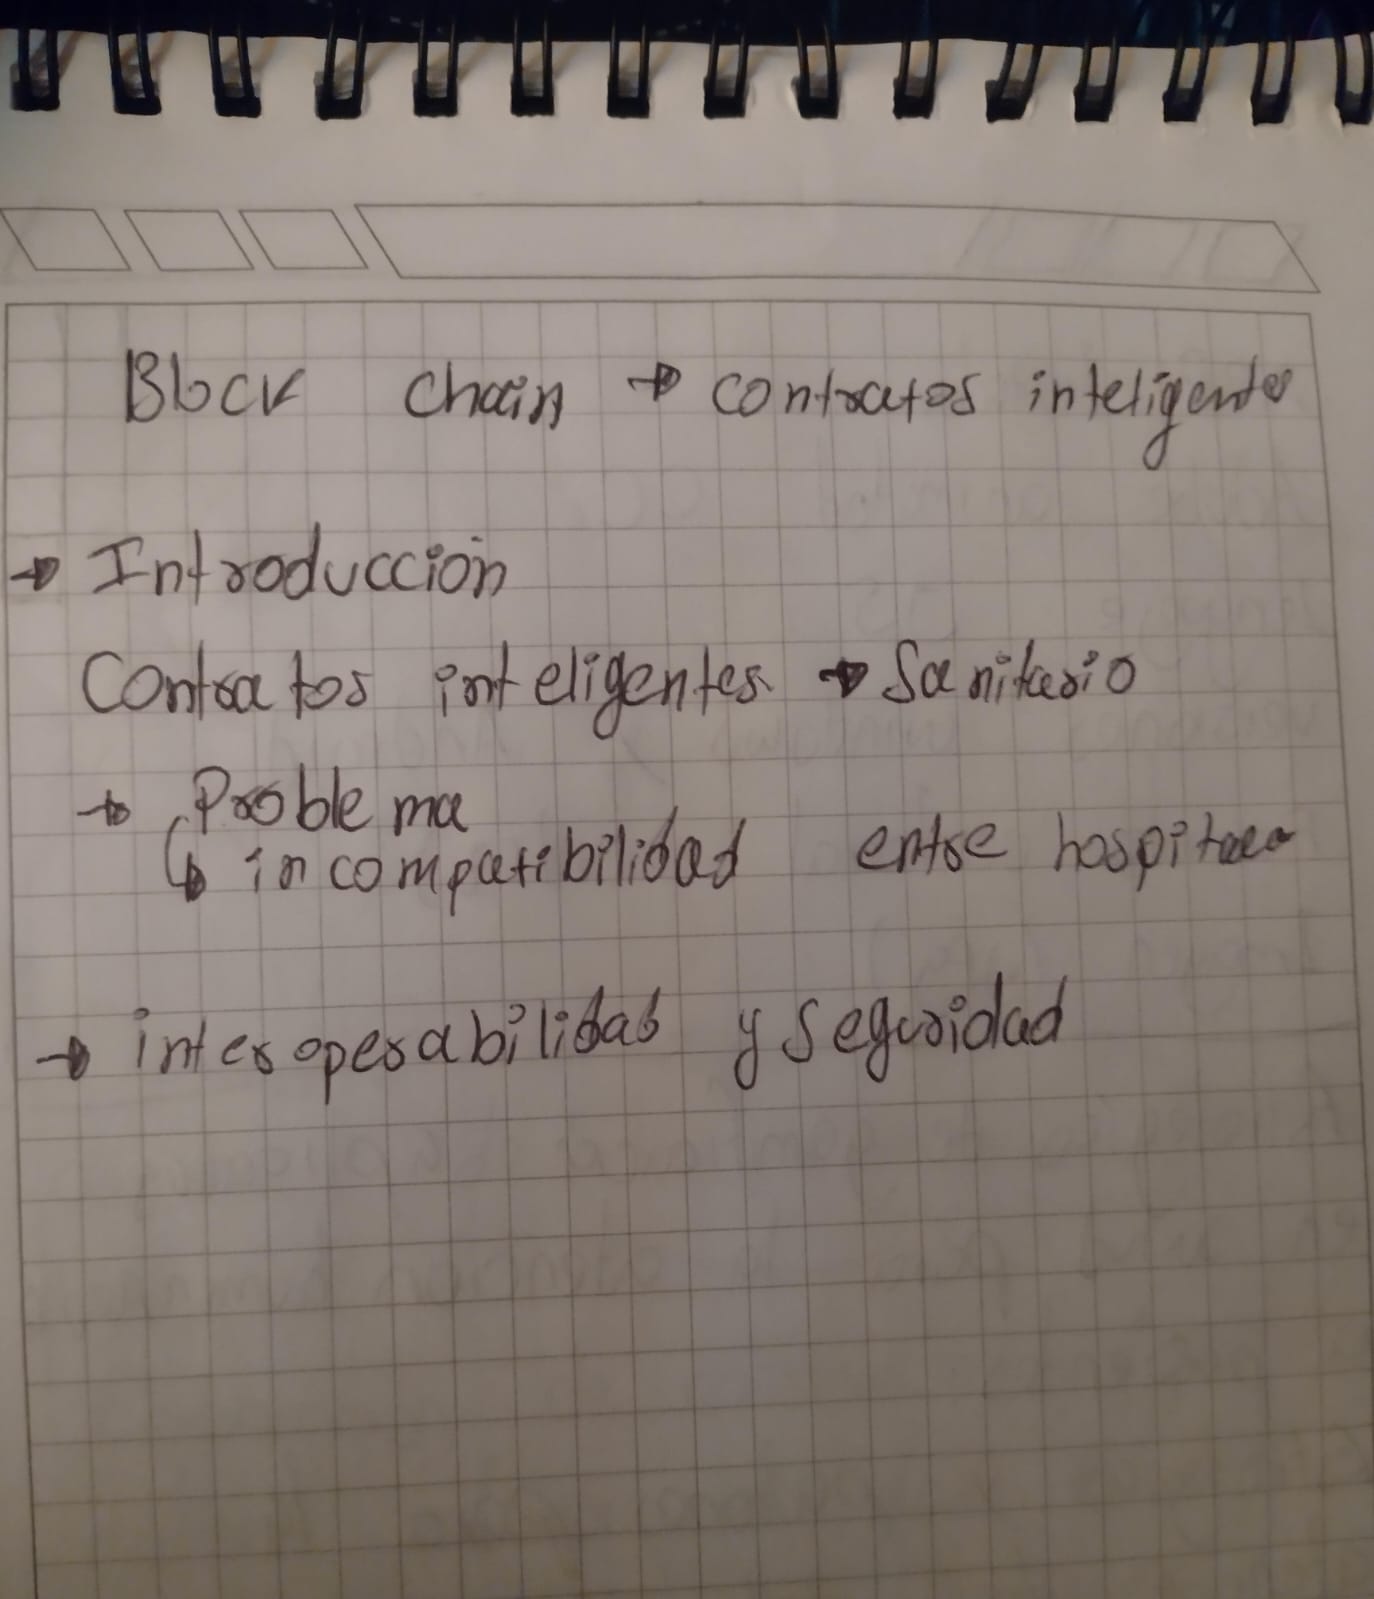 Block chain → contratos inteligentes
→ Introducción
Contratos inteligentes → Sanitario
→ Problema
↳ incompatibilidad entre
→ interoperabilidad y seguridad